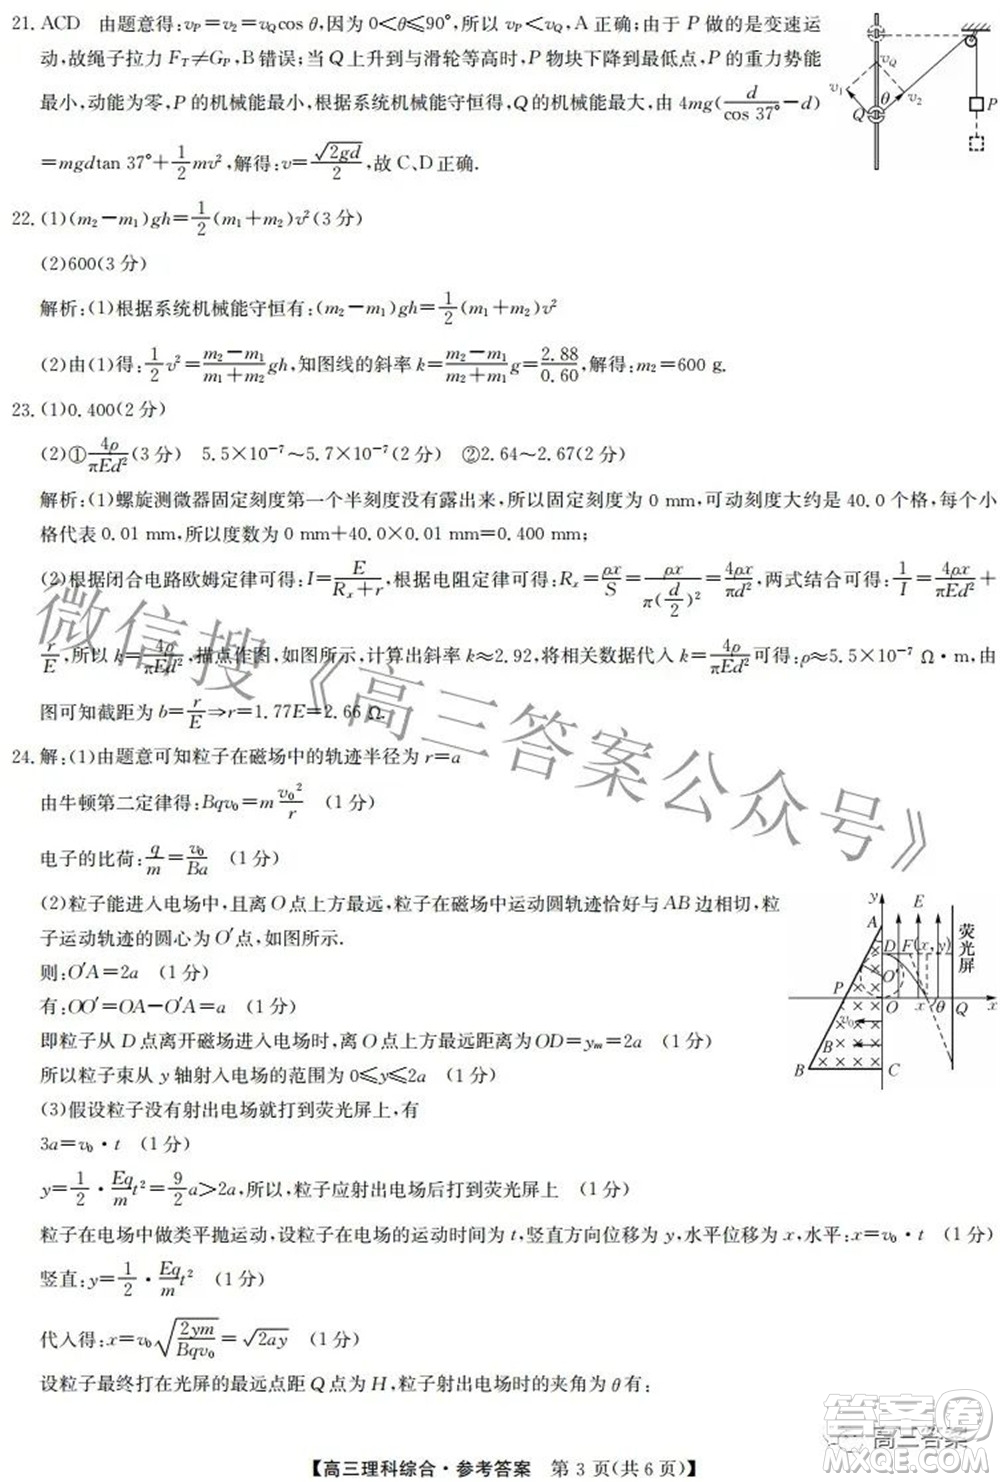 21. ACD 由题意得:v_P=v₂=v_Qcos θ,因为 0<θ⩽90°,所以 v_P<v_Q,A 正确;由于 P 做的是变速运
动,故绳子拉力 F_T≠G_P,B 错误;当 Q 上升到与滑轮等高时,P 物块下降到最低点,P 的重力势能
最小,动能为零,P 的机械能最小,根据系统机械能守恒得,Q的机械能最大,由 4mg(d/cos 37°−d)
=mgdtan 37°+1/2 mv²,解得:v=√(2gd)/2,故 C、D 正确.
v_Q
v₁
Q
θ
v₂
P
22. (1)(m₂−m₁)gh=1/2(m₁+m₂)v²(3 分)
(2)600(3 分)
解析:(1)根据系统机械能守恒有:(m₂−m₁)gh=1/2(m₁+m₂)v²
(2)由(1)得:1/2 v²=(m₂−m₁)/(m₁+m₂) gh,知图线的斜率 k=(m₂−m₁)/(m₂+m₁) g=2.88/0.60,解得:m₂=600 g.
23. (1)0.400(2 分)
(2)①4ρ/πEd²(3 分) 5.5×10⁻⁷~5.7×10⁻⁷(2 分) ②2.64~2.67(2 分)
解析:(1)螺旋测微器固定刻度第一个半刻度没有露出来,所以固定刻度为 0 mm,可动刻度大约是 40.0 个格,每个小
格代表 0.01 mm,所以度数为 0 mm+40.0×0.01 mm=0.400 mm;
(2)根据闭合电路欧姆定律可得:I=E/(Rₓ+r),根据电阻定律可得:Rₓ=ρx/S=ρx/π(d/2)²=4ρx/πd²,两式结合可得:1/I=4ρx/πEd²+
r/E,所以 k=4ρ/πEd²,描点作图,如图所示,计算出斜率 k≈2.92,将相关数据代入 k=4ρ/πEd²可得:ρ≈5.5×10⁻⁷ Ω·m,由
图可知截距为 b=r/E⇒r=1.77E=2.66 Ω.
24. 解:(1)由题意可知粒子在磁场中的轨迹半径为 r=a
由牛顿第二定律得:Bqv₀=m v₀²/r (1 分)
电子的比荷:q/m=v₀/Ba (1 分)
(2)粒子能进入电场中,且离 O 点上方最远,粒子在磁场中运动圆轨迹恰好与 AB 边相切,粒
子运动轨迹的圆心为 O′点,如图所示.
则:O′A=2a (1 分)
有:OO′=OA−O′A=a (1 分)
即粒子从 D 点离开磁场进入电场时,离 O 点上方最远距离为 OD=y_m=2a (1 分)
所以粒子束从 y 轴射入电场的范围为 0⩽y⩽2a (1 分)
y
E
A
D
F(x,y)
荧光屏
O′
P
O
x
θ
Q
x
v₀
B
B
C
(3)假设粒子没有射出电场就打到荧光屏上,有
3a=v₀·t (1 分)
y=1/2·Eq/m t²=9/2 a>2a,所以,粒子应射出电场后打到荧光屏上 (1 分)
粒子在电场中做类平抛运动,设粒子在电场的运动时间为 t,竖直方向位移为 y,水平位移为 x,水平:x=v₀·t (1 分)
竖直:y=1/2·Eq/m t² (1 分)
代入得:x=v₀√(2ym/Bqv₀)=√(2ay) (1 分)
设粒子最终打在光屏的最远点距 Q 点为 H,粒子射出电场时的夹角为 θ 有:
【高三理科综合·参考答案 第 3 页(共 6 页)】
微信搜《高三答案公众号》
高三答案
答案圈
MXQE.COM